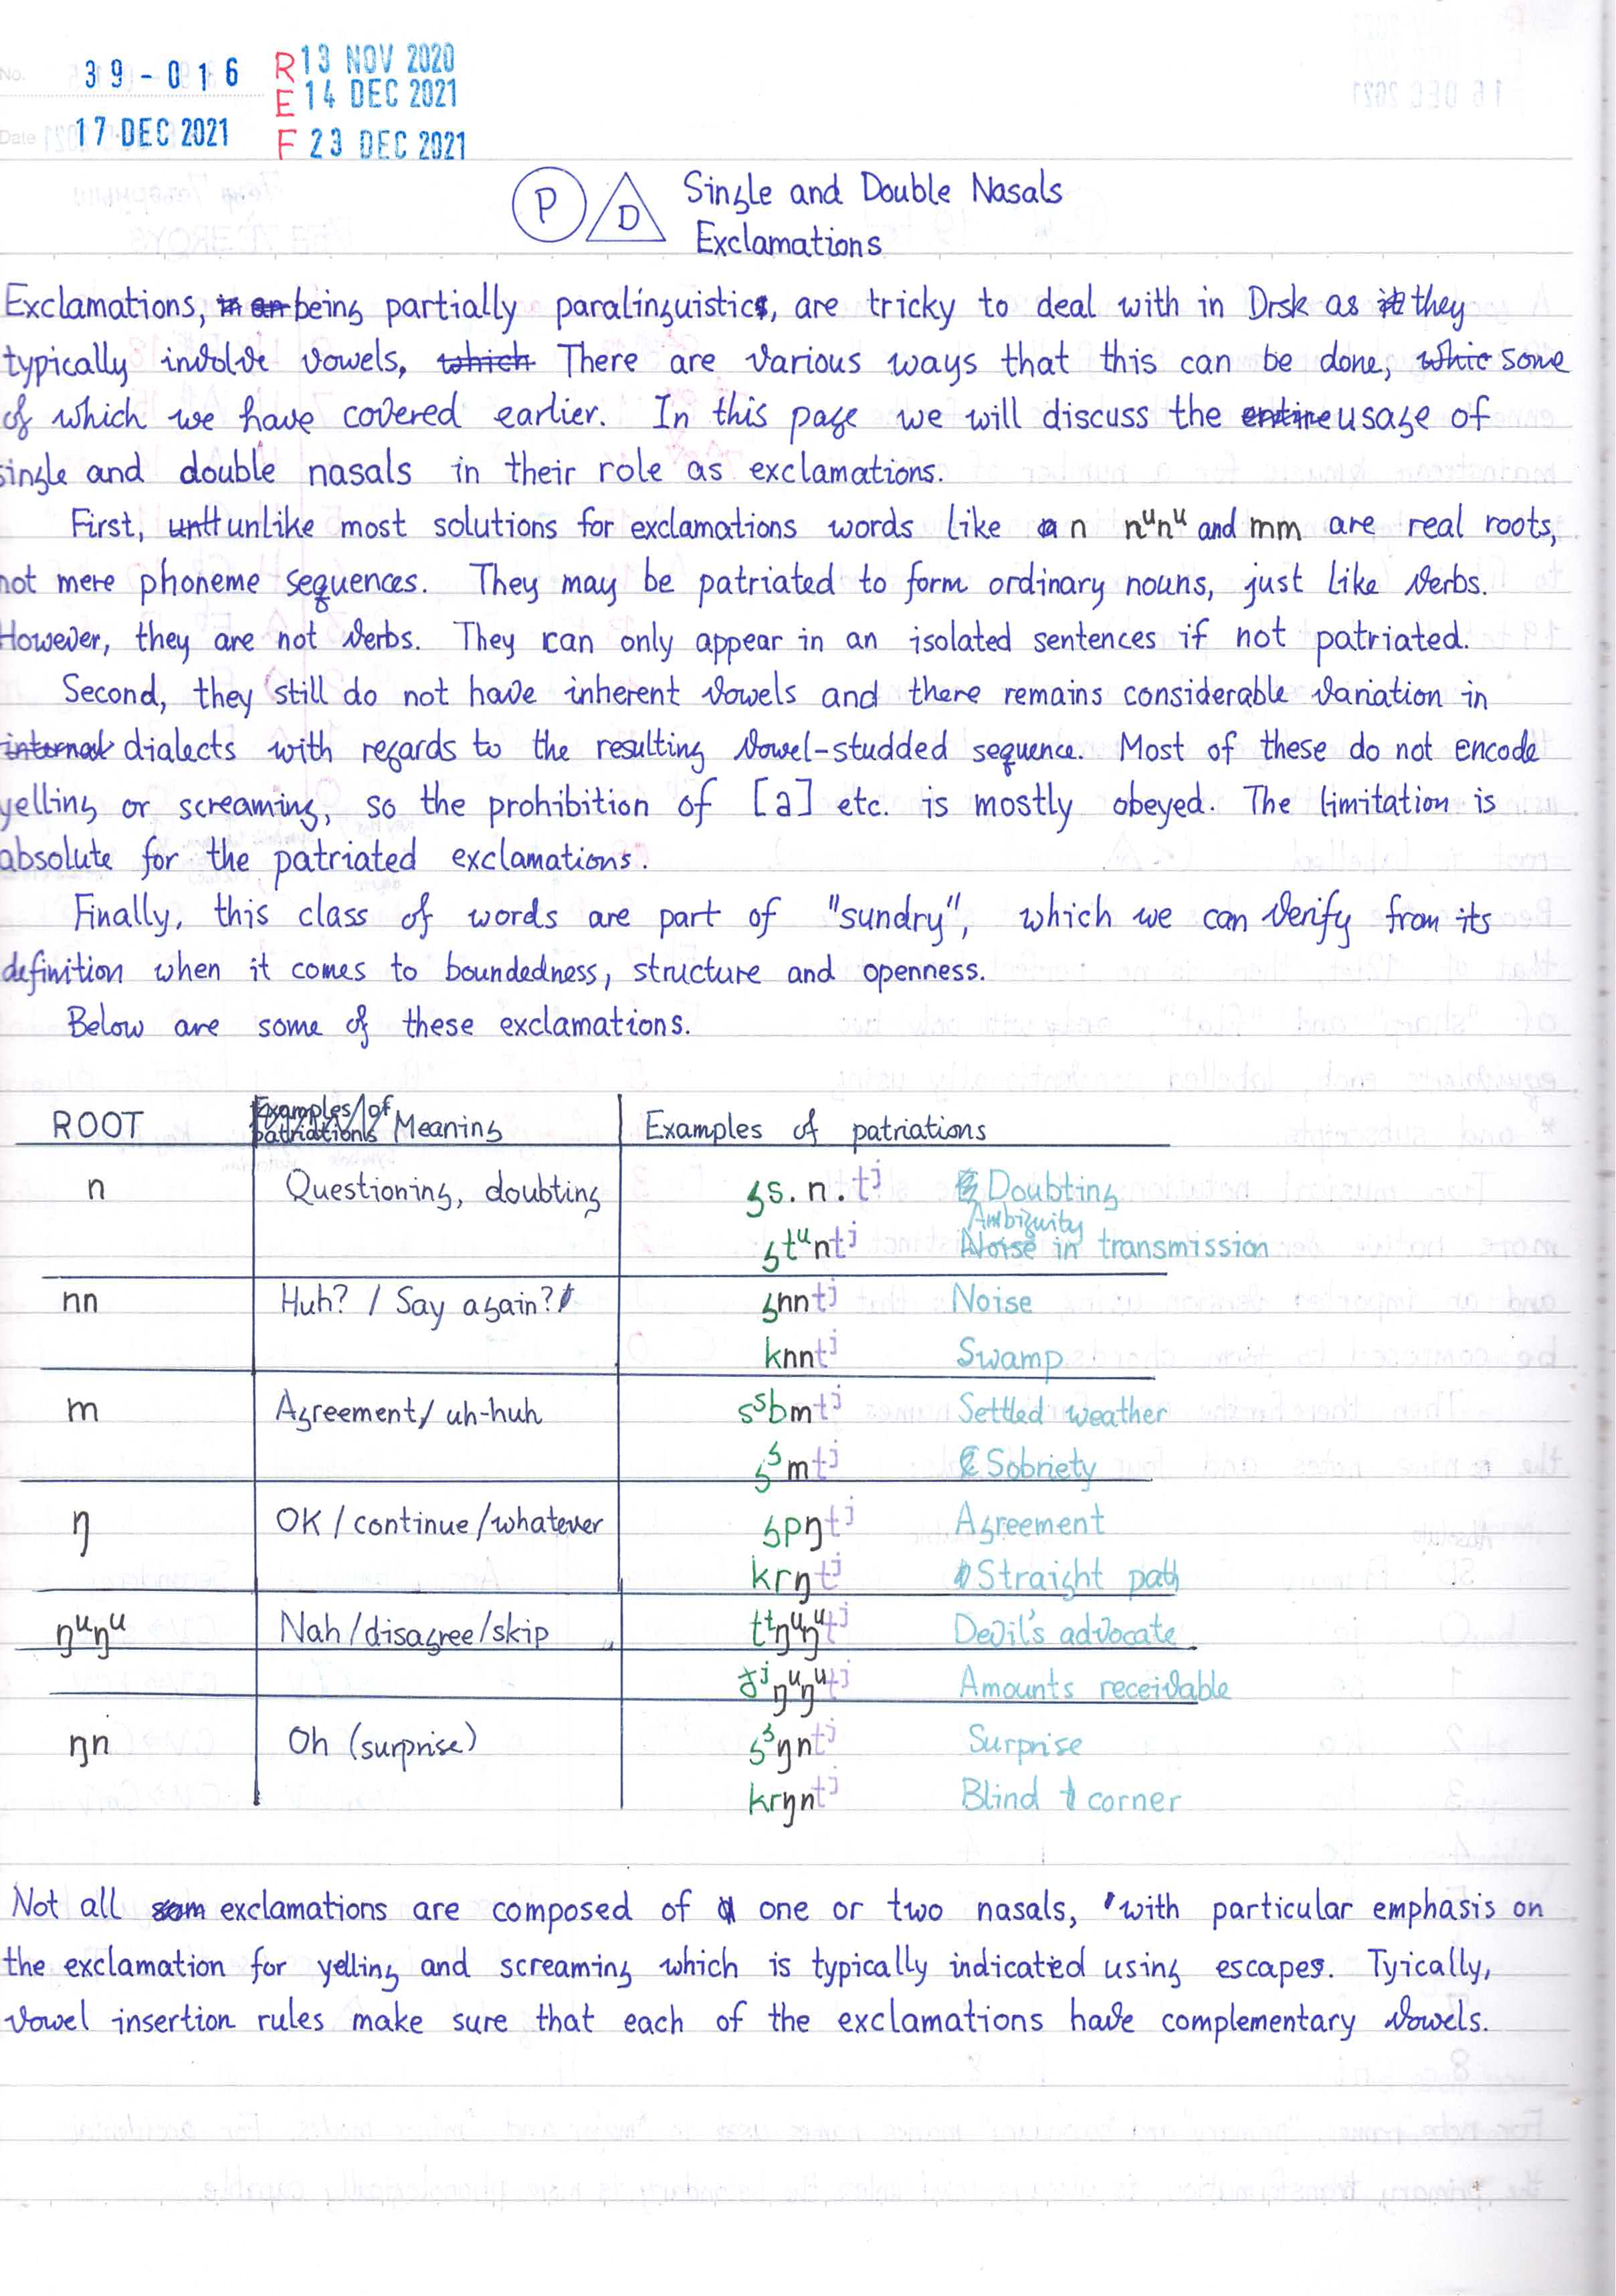 No. 39-016 R 13 NOV 2020
E 14 DEC 2021
Date 17 DEC 2021 F 23 DEC 2021
P D Single and Double Nasals
Exclamations
Exclamations, being partially paralinguistic, are tricky to deal with in Drsk as they
typically involve vowels, There are various ways that this can be done, some
of which we have covered earlier. In this page we will discuss the usage of
single and double nasals in their role as exclamations.
First, unlike most solutions for exclamations words like n nᵘnᵘ and mm are real roots,
not mere phoneme sequences. They may be patriated to form ordinary nouns, just like verbs.
However, they are not verbs. They can only appear in an isolated sentences if not patriated.
Second, they still do not have inherent vowels and there remains considerable variation in
dialects with regards to the resulting vowel-studded sequence. Most of these do not encode
yelling or screaming, so the prohibition of [a] etc. is mostly obeyed. The limitation is
absolute for the patriated exclamations.
Finally, this class of words are part of "sundry", which we can verify from its
definition when it comes to boundedness, structure and openness.
Below are some of these exclamations.
ROOT Meaning Examples of patriations
n Questioning, doubting gs.n.tʲ Doubting
Ambiguity
gtᵘntʲ in transmission
nn Huh? / Say again? gnntʲ Noise
knntʲ Swamp
m Agreement/ uh-huh sˢbmtʲ Settled weather
mtʲ Sobriety
ŋ OK / continue /whatever gpŋtʲ Agreement
krŋtʲ Straight path
ŋᵘŋᵘ Nah/disagree/skip tᵗŋᵘŋᵘtʲ Devil's advocate
Amounts receivable
ŋn Oh (surprise) Surprise
krŋntʲ Blind corner
Not all exclamations are composed of one or two nasals, with particular emphasis on
the exclamation for yelling and screaming which is typically indicated using escapes. Tyically,
vowel insertion rules make sure that each of the exclamations have complementary vowels.